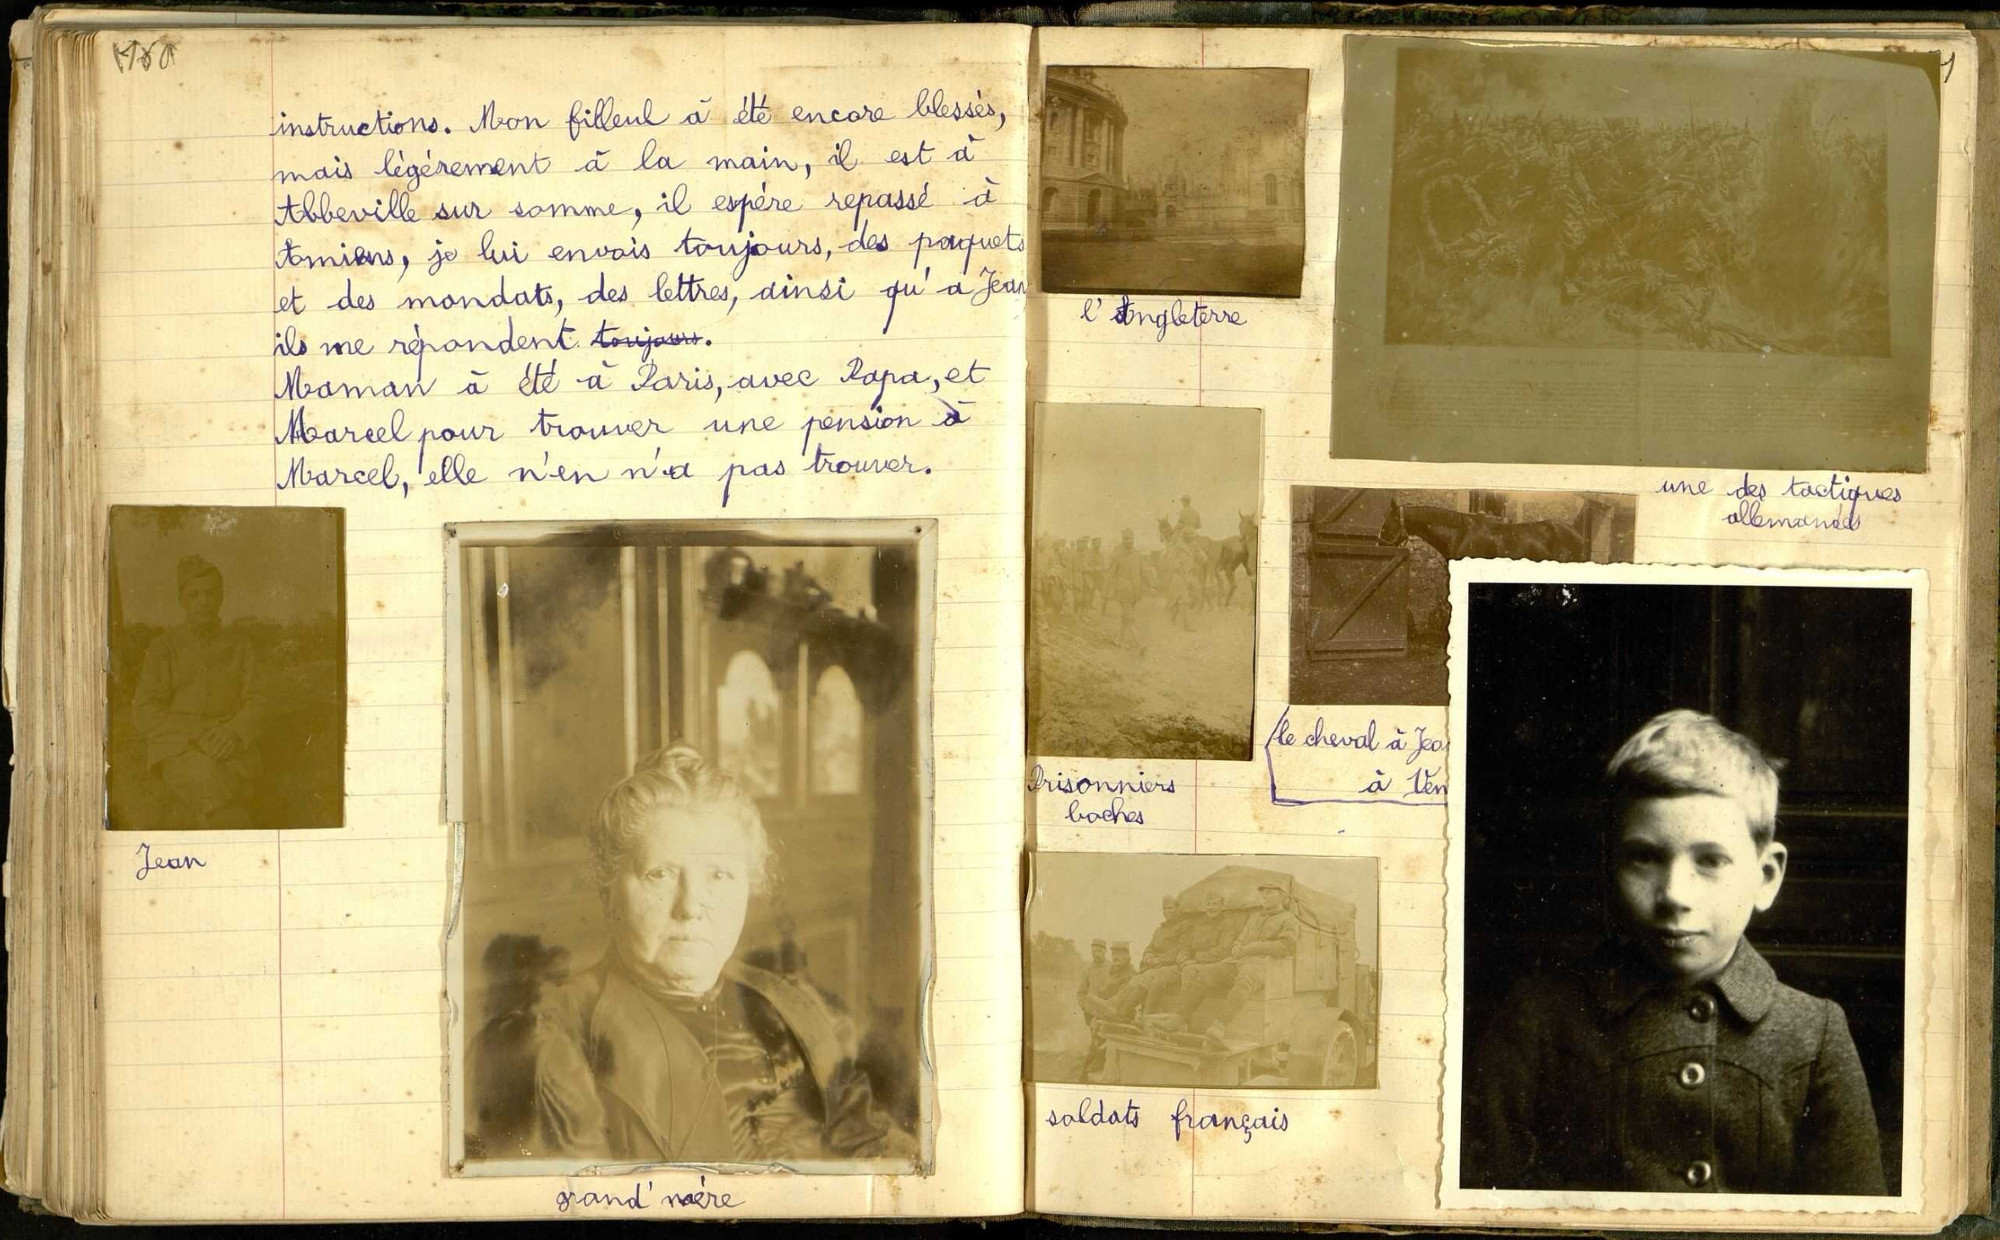 instructions. Mon filleul à été encore blessés,
mais légérement à la main, il est à
Abbeville sur somme, il espére repassé à
Amiens, je lui envois toujours, des paquets
et des mandats, des lettres, ainsi qu'a Jean
ils me répondent toujours.
Maman à été à Paris, avec Papa, et
Marcel pour trouver une pension à
Marcel, elle n'en n'a pas trouver.
Jean
grand'mére
l'Angleterre
une des tactiques
allemandes
Prisonniers
boches
le cheval à Jea
à Ven
soldats français